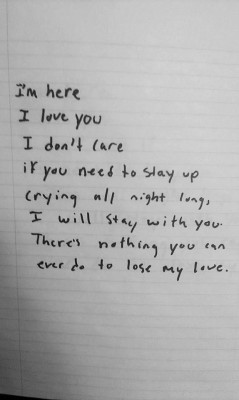 I'm here
I love you
I don't care
if you need to stay up
crying all night long,
I will stay with you.
There's nothing you can
ever do to lose my love.